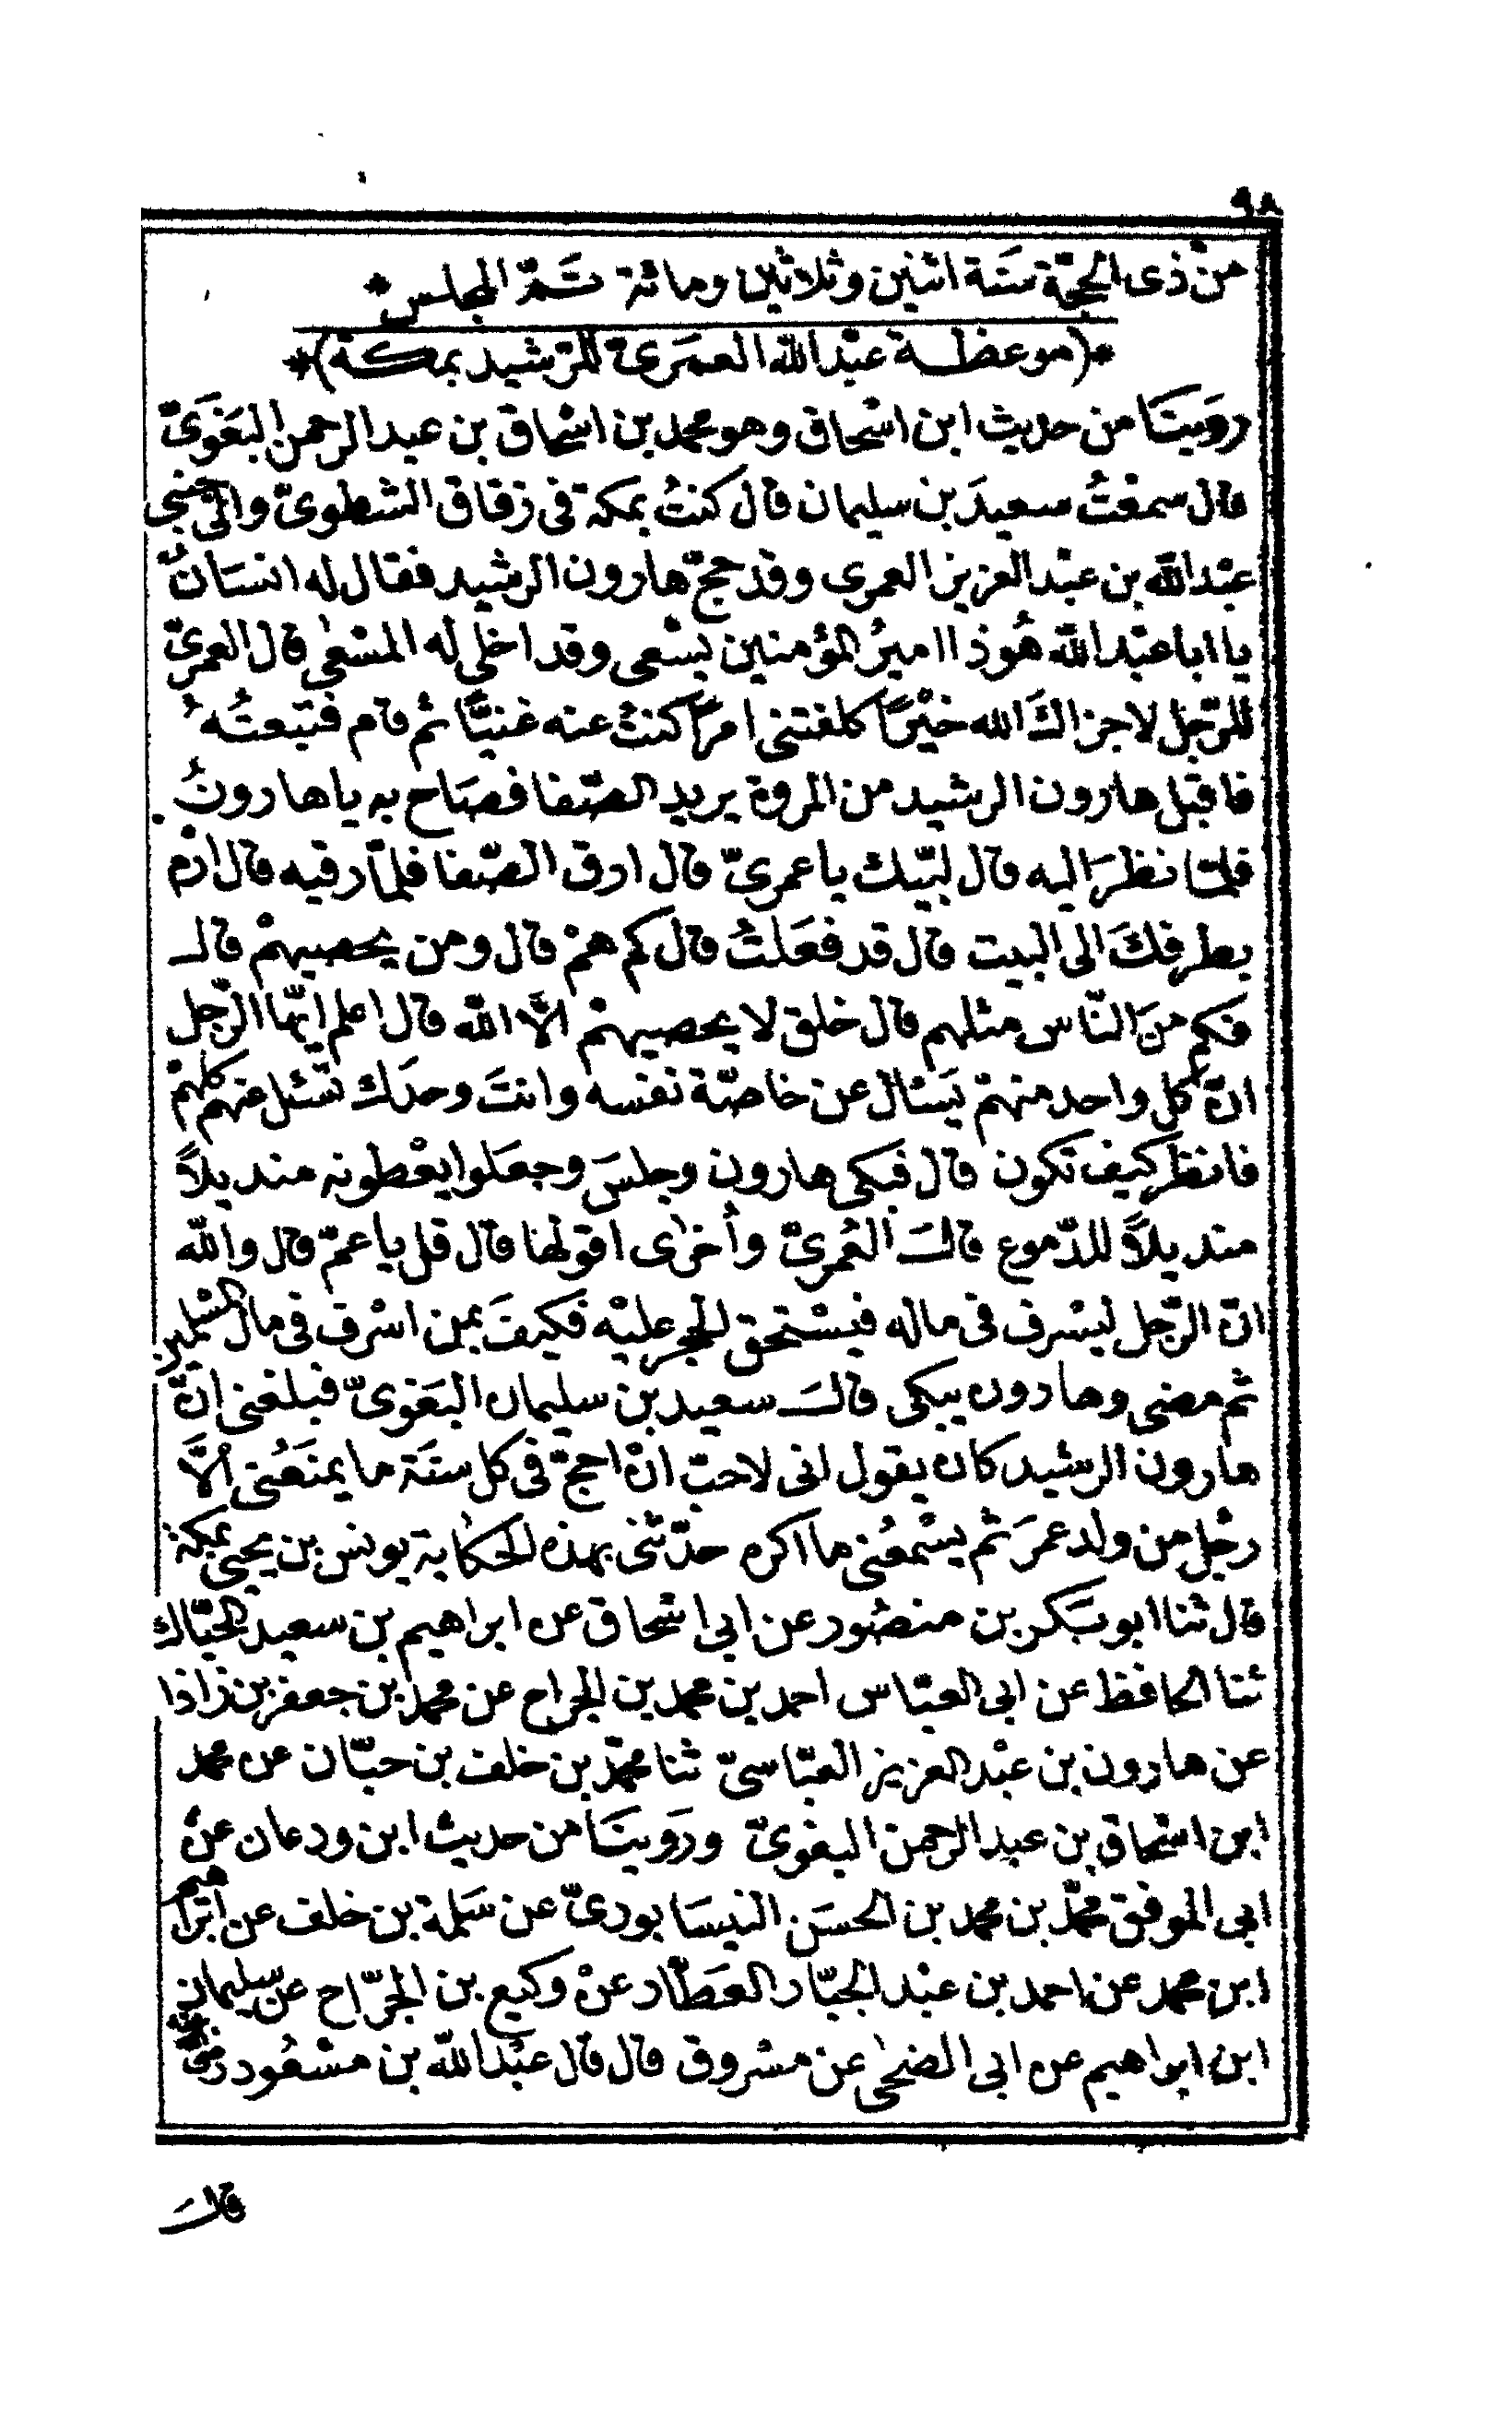 ٩٨
من ذى الحجّة سَنَة اثنين وثلاثين ومائة تَمّ المجلس *
*(موعظة عبْدالله العمَرىّ للرّشيد بمكة)*
روَينا من حديث ابن اسْحاق وهو محمد بن اسْحاق بن عبد الرحمن البغَوَىّ
قال سمعْتُ سعيدَ بن سليمان قال كنتُ بمكة فى زقاق الشطوىّ والى جنبى
عبْدالله بن عبْد العزيز العمرى وقد حجّ هارون الرشيد فقال له انسَانٌ
يا اباعبْدالله هُوذ اامیرُ المؤمنين يسْعى وقد اخلى له المسْعى قال العمرىّ
للرّجل لاجزاكَ الله خيْرًا كلفتنى امرًا كنتُ عنه غنيًّا ثم قام فتبعتُهُ
فاقبَل هارون الرشيد من المروة يريد الصّفا فصَاح به يا هارونُ
فلمّا نظرَ اليه قال لبّيك ياعمرىّ قال ارق الصّفا فلمّا رقيه قال ارْم
بطرفكَ الى البيت قال قد فعَلتُ قال كم همْ قال ومن يحصيهمْ قال
فكم منَ النّاس مثلهم قال خلق لا يحصيهمْ الاَّ الله قال اعلم ايّها الرّجل
انّ كل واحد منهمْ يَسْال عن خاصّة نفسه وانتَ وحدَك تسْئل عنهم كلهمْ
فانظر كيف تكون قال فبَكى هارون وجلسَ وجعَلوا يعْطونه منديلاً
منديلاً للدّموع قالَ العُمرىّ وأخرٰى اقولها قال قل ياعمّ قال والله
انّ الرّجل ليسْرف فى ماله فيسْتحق الحجر عليْه فكيفَ بمن اسْرف فى مال المسْلمين
ثم مضى وهارون يبكى قالَ سعيد بن سليمان البَغوىّ فبلغنى انّ
هارون الرشيد كان يقول انى لاحبّ انْ احجّ فى كل سنَة ما يمنَعُنى الاَّ
رجُل من ولد عمرَ ثم يسْمعُنى ما اكره حدّثنى بهذه الحكٰاية يونس بن يحيى بمكة
قال ثنا ابو بَكر بن منصُور عن ابى اسْحاق عن ابراهيم بن سعيد الحبّاك
ثنا الحافظ عن ابى العبّاس احمد بن محمد بن الجراح عن محمد بن جعفر بن زاذا
عن هارون بن عبْد العزيز العبّاسىّ ثنا محمّد بن خلف بن حبّان عن محمد
ابن اسْحاق بن عبد الرحمن البغوىّ ورَوينَا من حديث ابن ودعان عنْ
ابى الموفق محمّد بن محمد بن الحسَن النيسَابورىّ عن سَلمة بن خلف عن ابراهيم
ابن محمد عن احمد بن عبْد الجبّار العَطّار عنْ وكيع بن الجرّاح عن سليمان
ابن ابراهيم عن ابى الضحٰى عن مسْروق قال قال عبْدالله بن مسْعُود رضىَ
قالَ